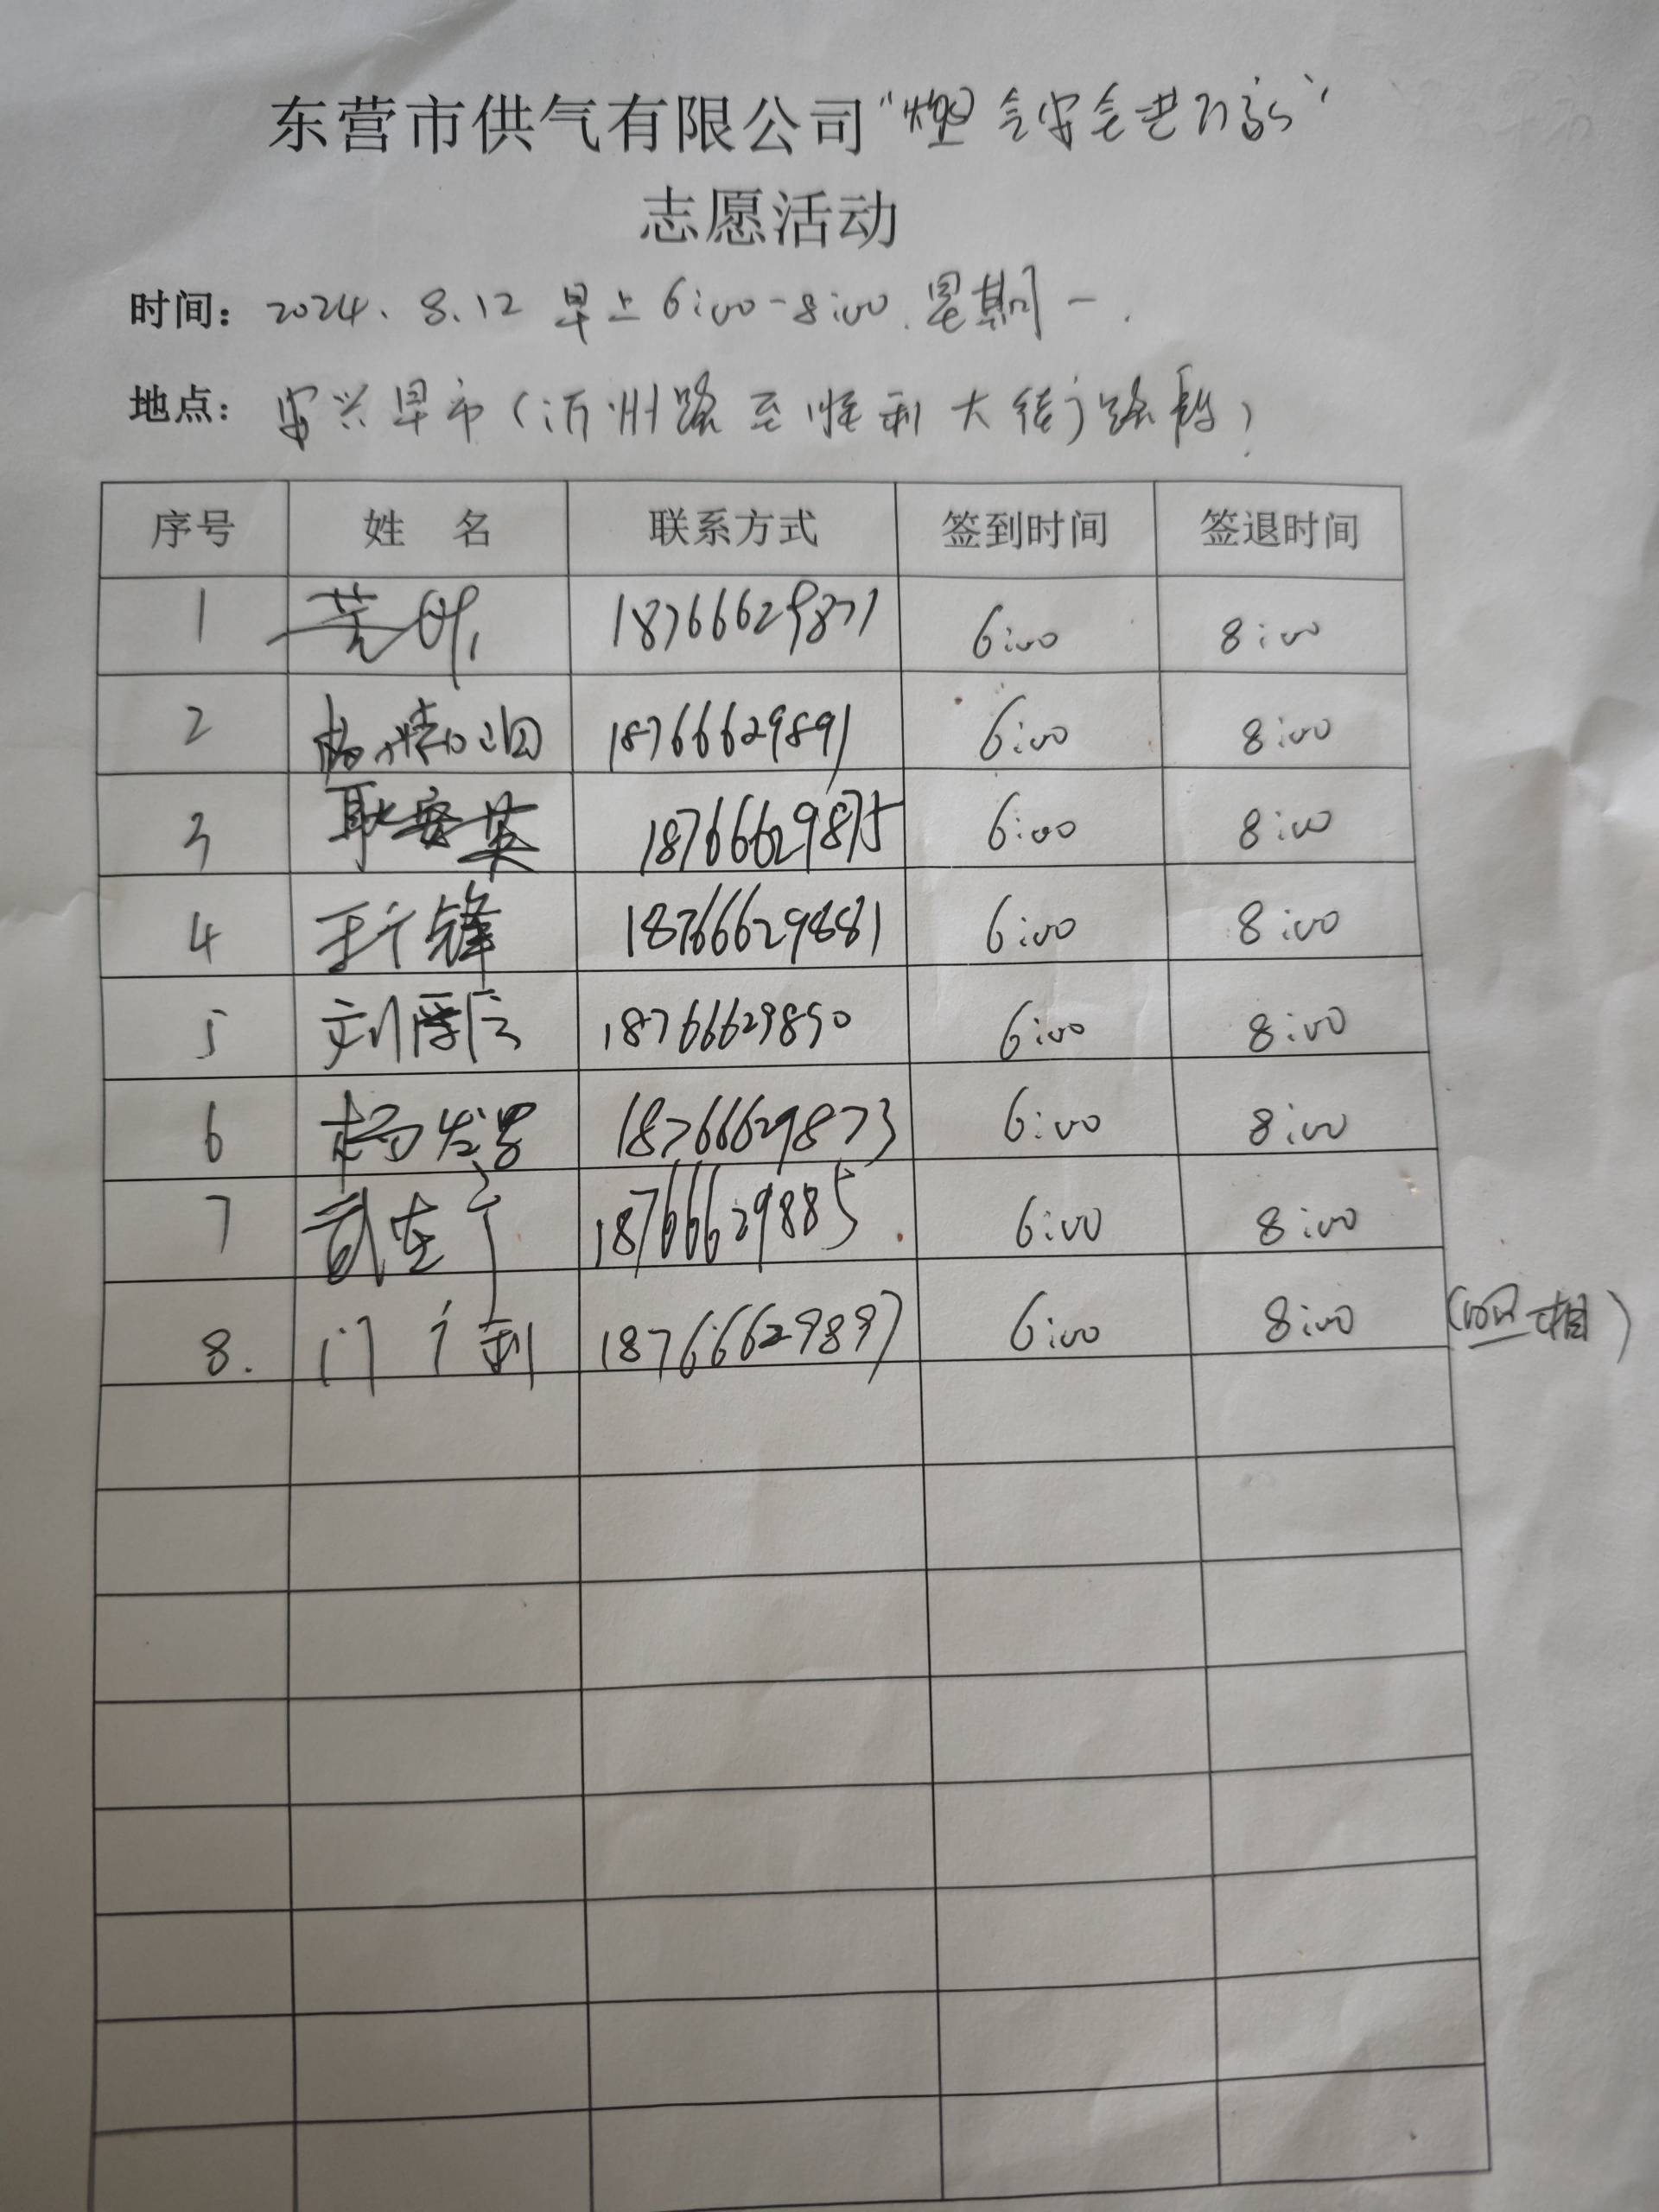 东营市供气有限公司“燃气安全进万家”
志愿活动
时间: 2024.8.12 早上6:00-8:00.星期一.
地点: 安兴早市(沂州路至胜利大街路段)
序号 姓 名 联系方式 签到时间 签退时间
1 18766629871 6:00 8:00
2 杨 18766629891 6:00 8:00
3 耿安英 18766629875 6:00 8:00
4 王广锋 18766629881 6:00 8:00
5 刘 18766629890 6:00 8:00
6 杨 18766629873 6:00 8:00
7 武 18766629885 6:00 8:00
8. 门广利 18766629897 6:00 8:00 (照相)